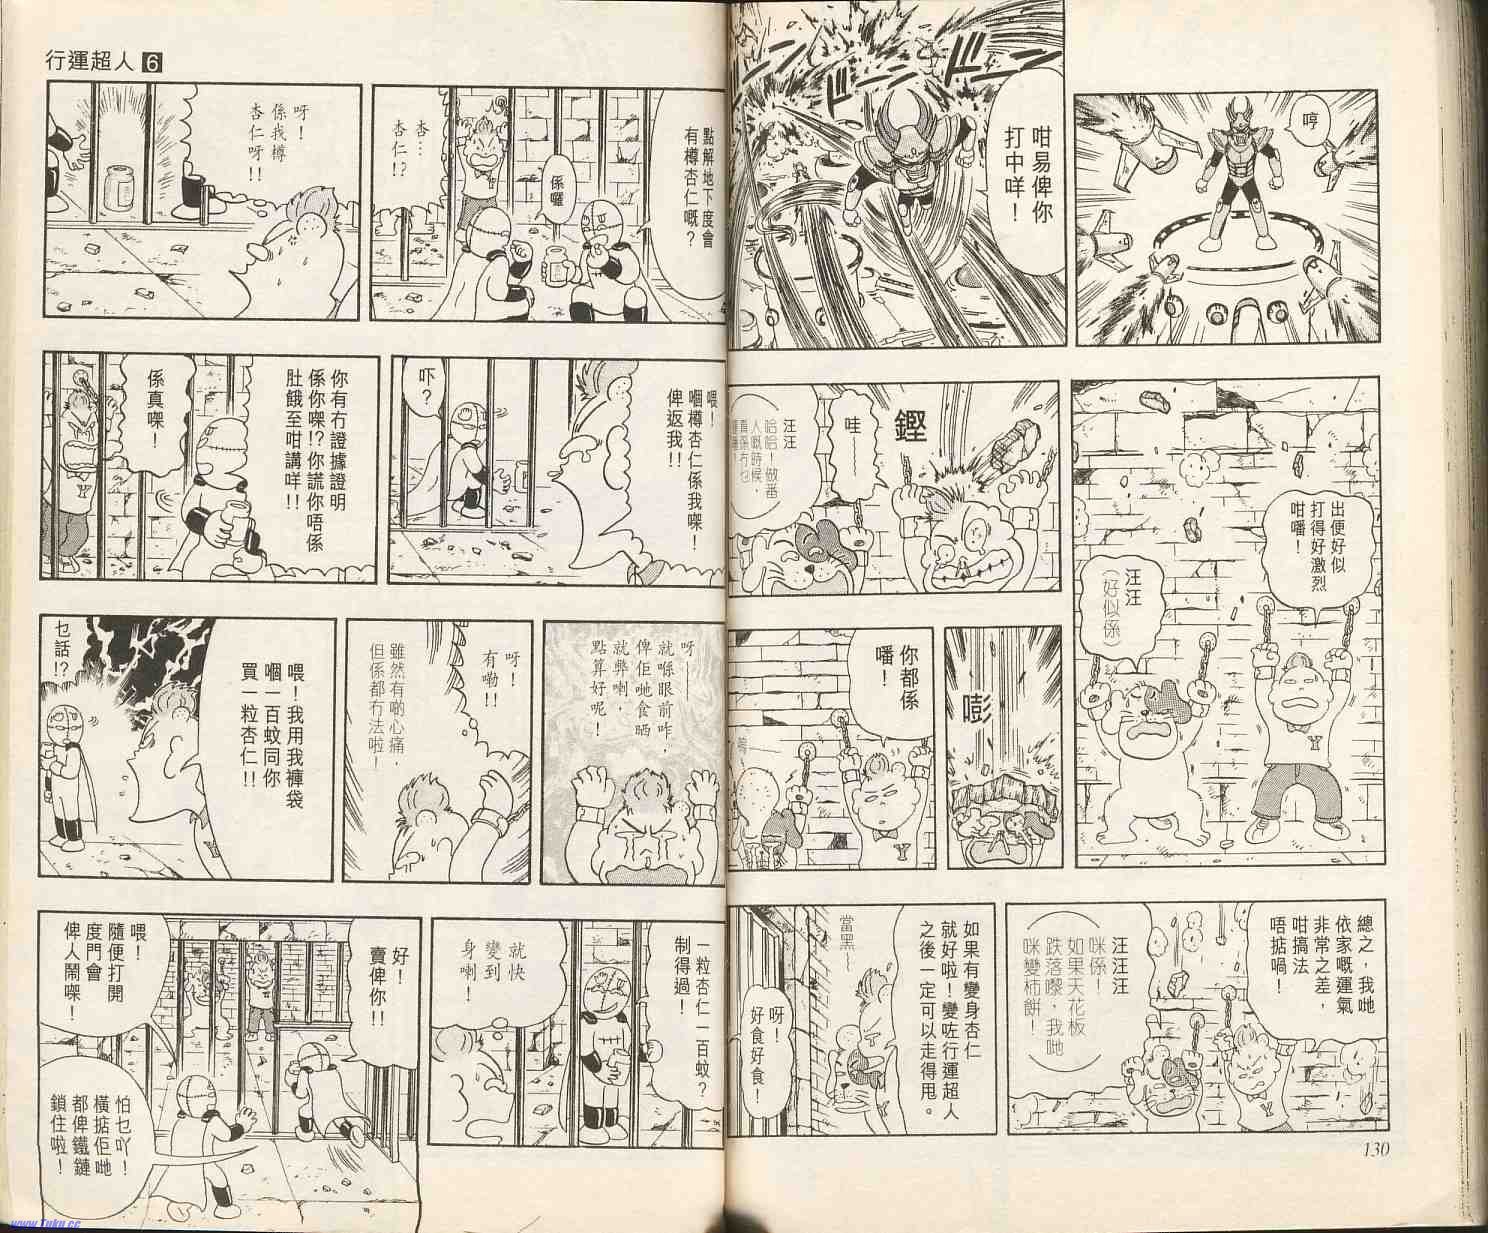 哼
咁易俾你
打中咩！
出便好似
打得好激烈
咁噃！
汪汪
（好似係）
鏗
哇—
汪汪
哈哈！做番
人嘅時候，
真係冇乜
嘭
你都係
噃！
總之，我哋
依家嘅運氣
非常之差，
咁搞法
唔掂喎！
汪汪汪
咪係！
如果天花板
跌落嚟，我哋
咪變柿餅！
如果有變身杏仁
就好啦！變咗行運超人
之後一定可以走得甩。
當黑～
呀！
好食好食！
130
行運超人6
點解地下度會
有樽杏仁嘅？
係囉
杏⋯
杏仁!?
呀！
係我樽
杏仁呀!!
喂！
嗰樽杏仁係我㗎！
俾返我!!
吓？
你有冇證據證明
係你㗎!?你謊你唔係
肚餓至咁講咩!!
係真㗎！
呀——
就喺眼前咋，
俾佢哋食晒
就弊喇，
點算好呢！
呀！
有嘞!!
雖然有啲心痛，
但係都冇法啦！
喂！我用我褲袋
嗰一百蚊同你
買一粒杏仁!!
乜話!?
一粒杏仁一百蚊？
制得過！
就快
變到
身喇！
好！
賣俾你!!
喂！
隨便打開
度門會
俾人鬧㗎！
怕乜吖！
橫掂佢哋
都俾鐵鏈
鎖住啦！
www.Tuku.cc